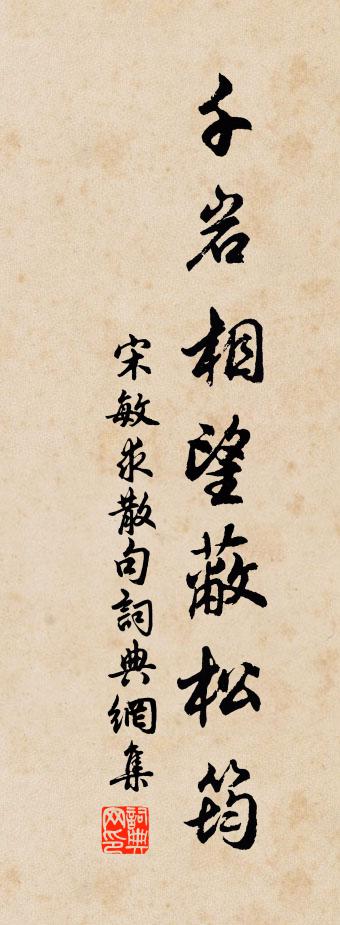 千岩相望蔽松筠
宋敏求散句詞典網集
詞典网印